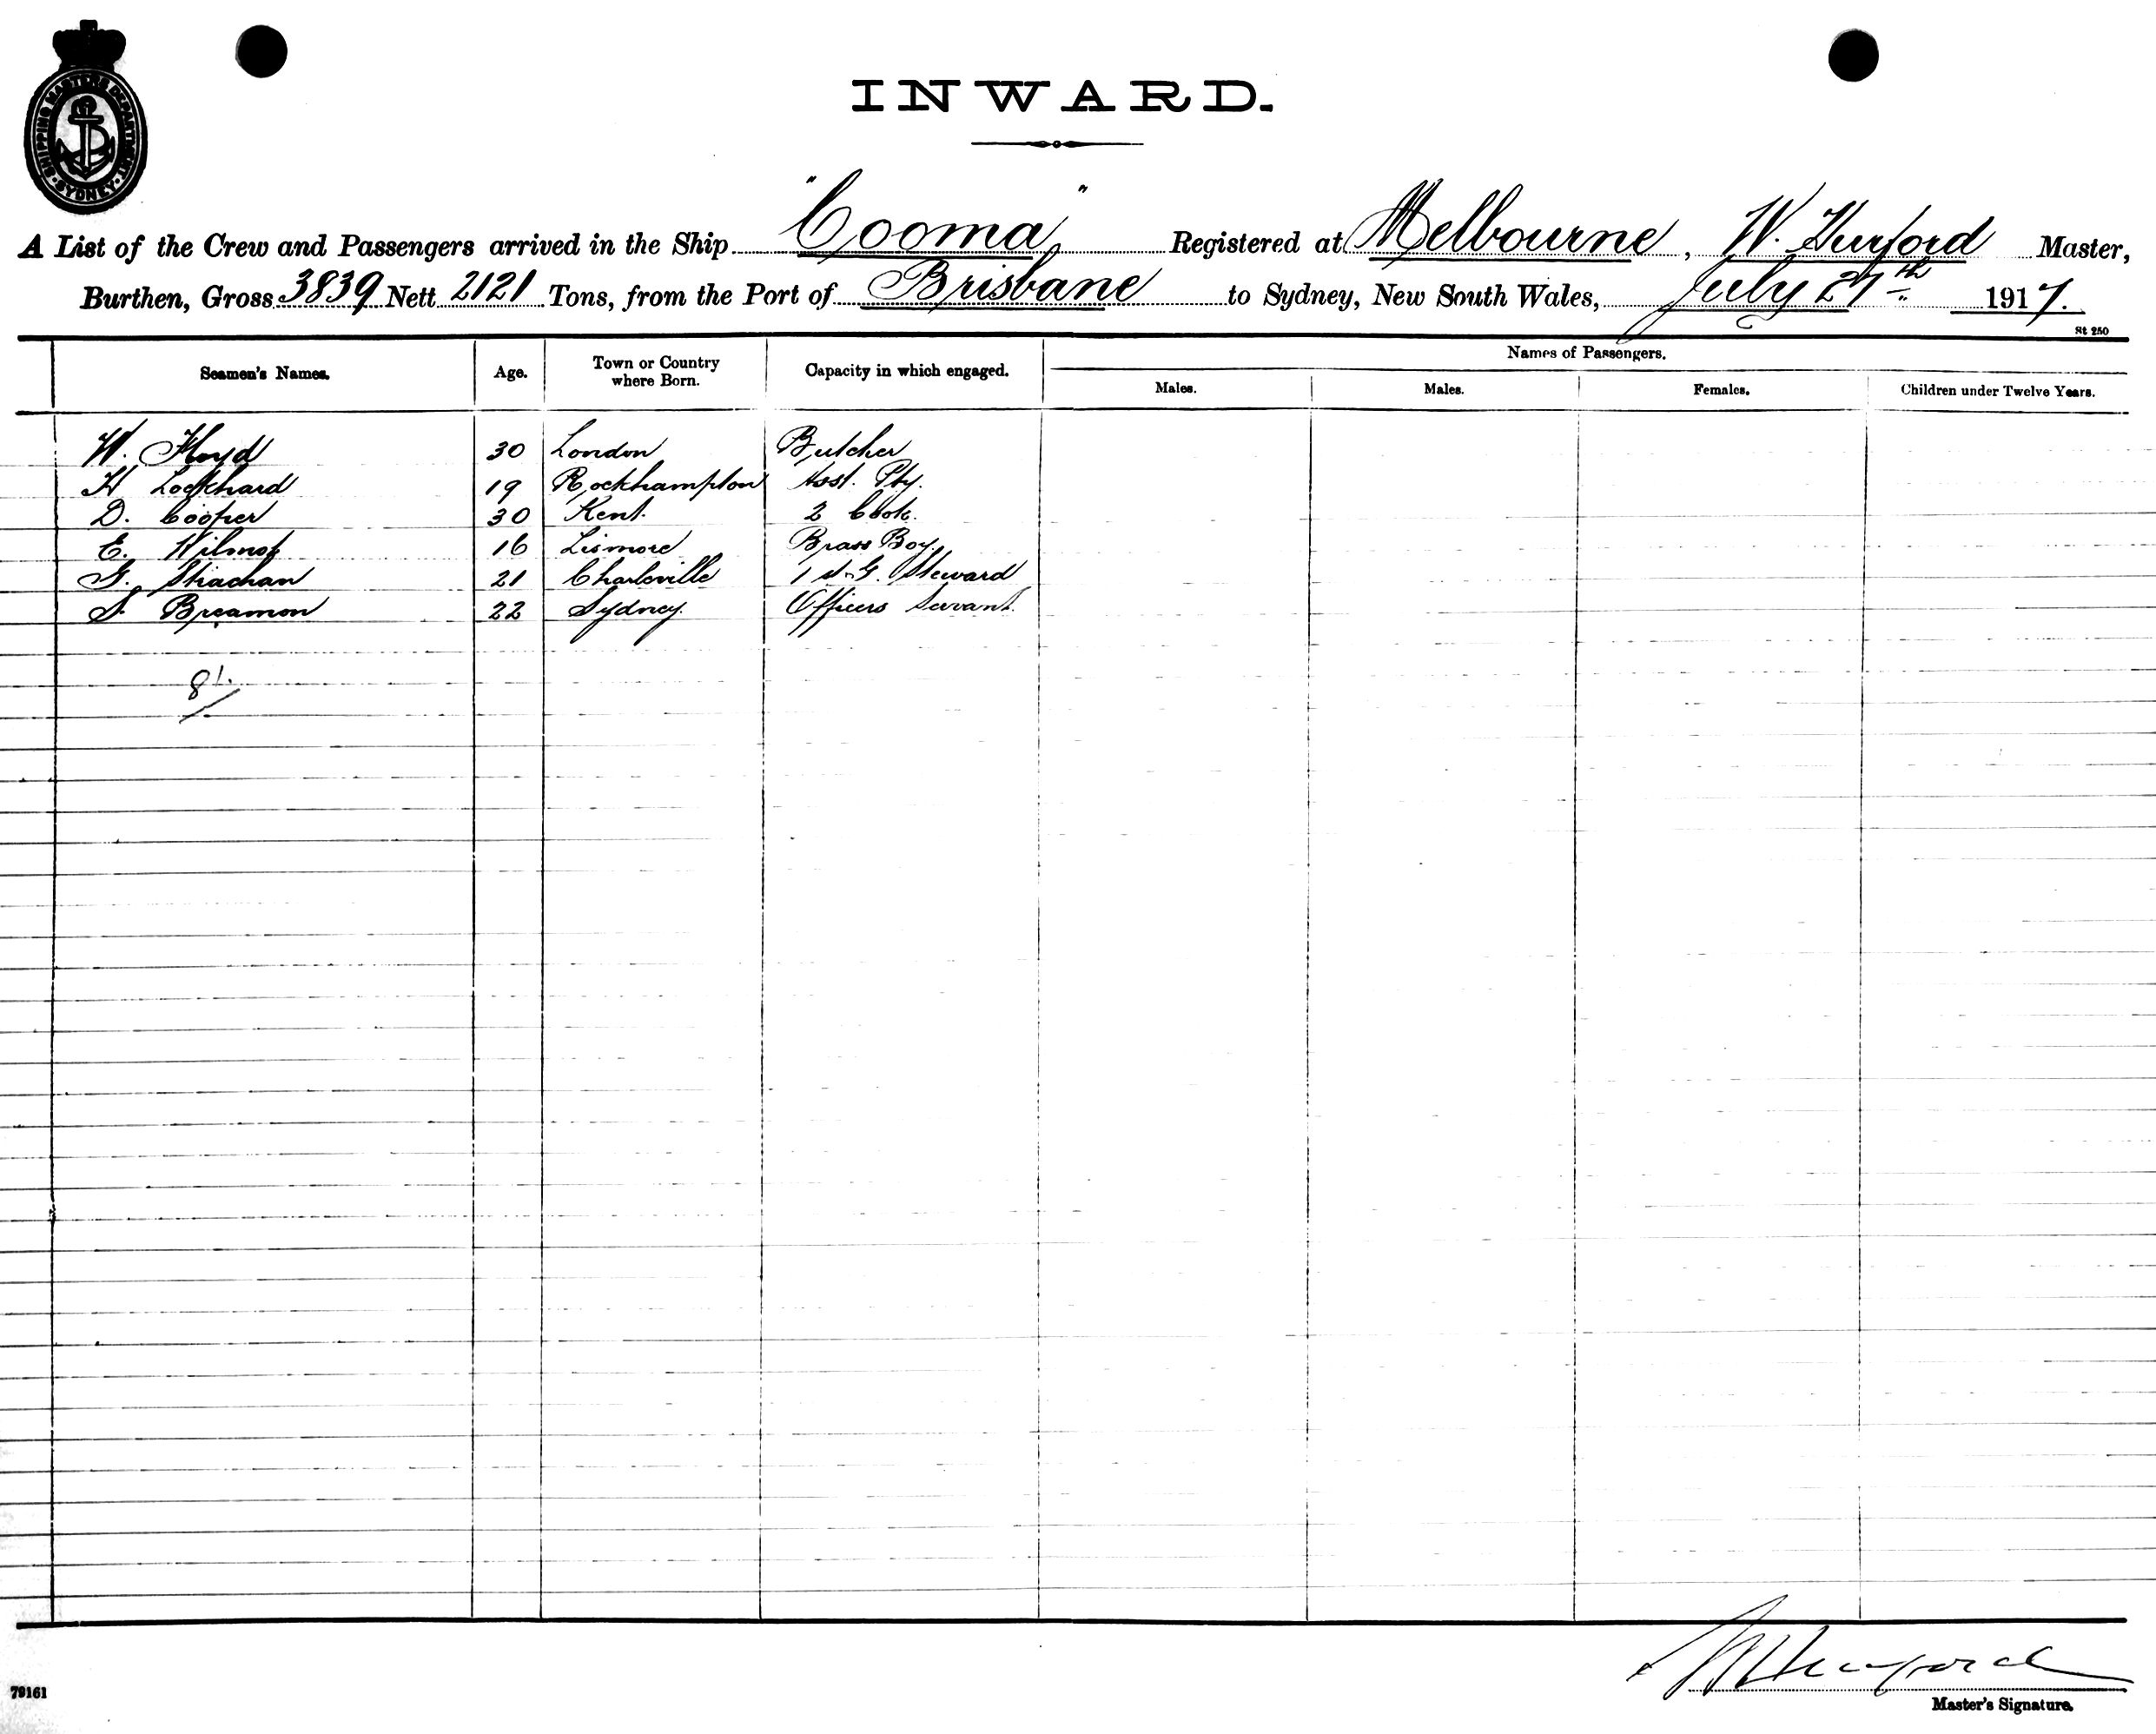 SHIPPING MASTERS DEPARTMENT · SYDNEY ·
INWARD.
A List of the Crew and Passengers arrived in the Ship "Cooma" Registered at Melbourne, W. Hurford Master,
Burthen, Gross 3839 Nett 2121 Tons, from the Port of Brisbane to Sydney, New South Wales, July 27th 1917.
St 250
Seamen's Names. Age. Town or Country where Born. Capacity in which engaged. Names of Passengers.
Males. Males. Females. Children under Twelve Years.
W. Floyd 30 London Butcher
H Lockhard 19 Rockhampton Asst. Pty.
D. Cooper 30 Kent. 2 Cook.
E. Wilmot 16 Lismore Brass Boy.
G. Strachan 21 Charleville 1 st. G. Steward
S. Breamon 22 Sydney. Officers Servant.
81.
W Hurford
79161
Master's Signature.